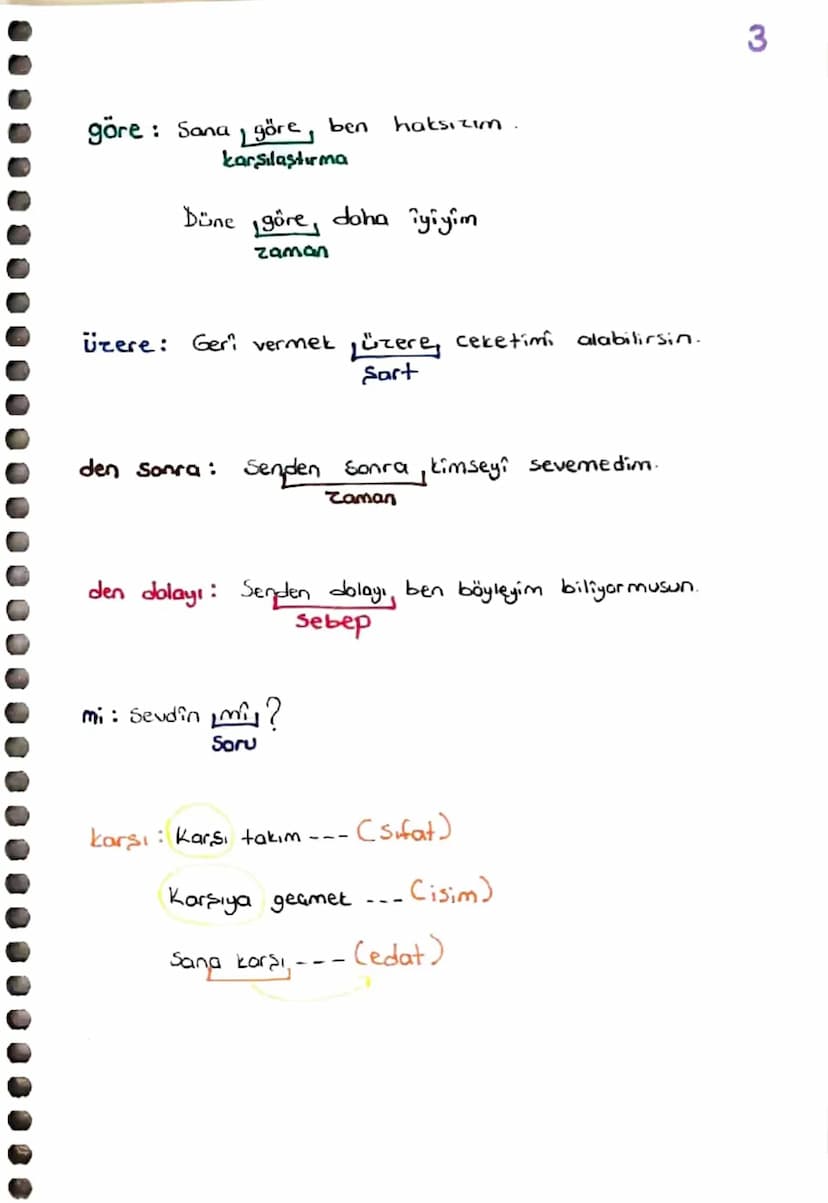 3
göre: Sana göre, ben haksızım.
karşılaştırma
Düne göre, daha iyiyim
zaman
üzere: Geri vermek üzere, ceketimi alabilirsin.
Şart
den sonra: Senden sonra, kimseyi sevemedim.
Zaman
den dolayı: Senden dolayı, ben böyleyim biliyormusun.
Sebep
mi: Sevdin mi?
Soru
karşı: Karşı takım --- (Sıfat)
Karşıya geçmek --- (isim)
Sana karşı, --- (edat)